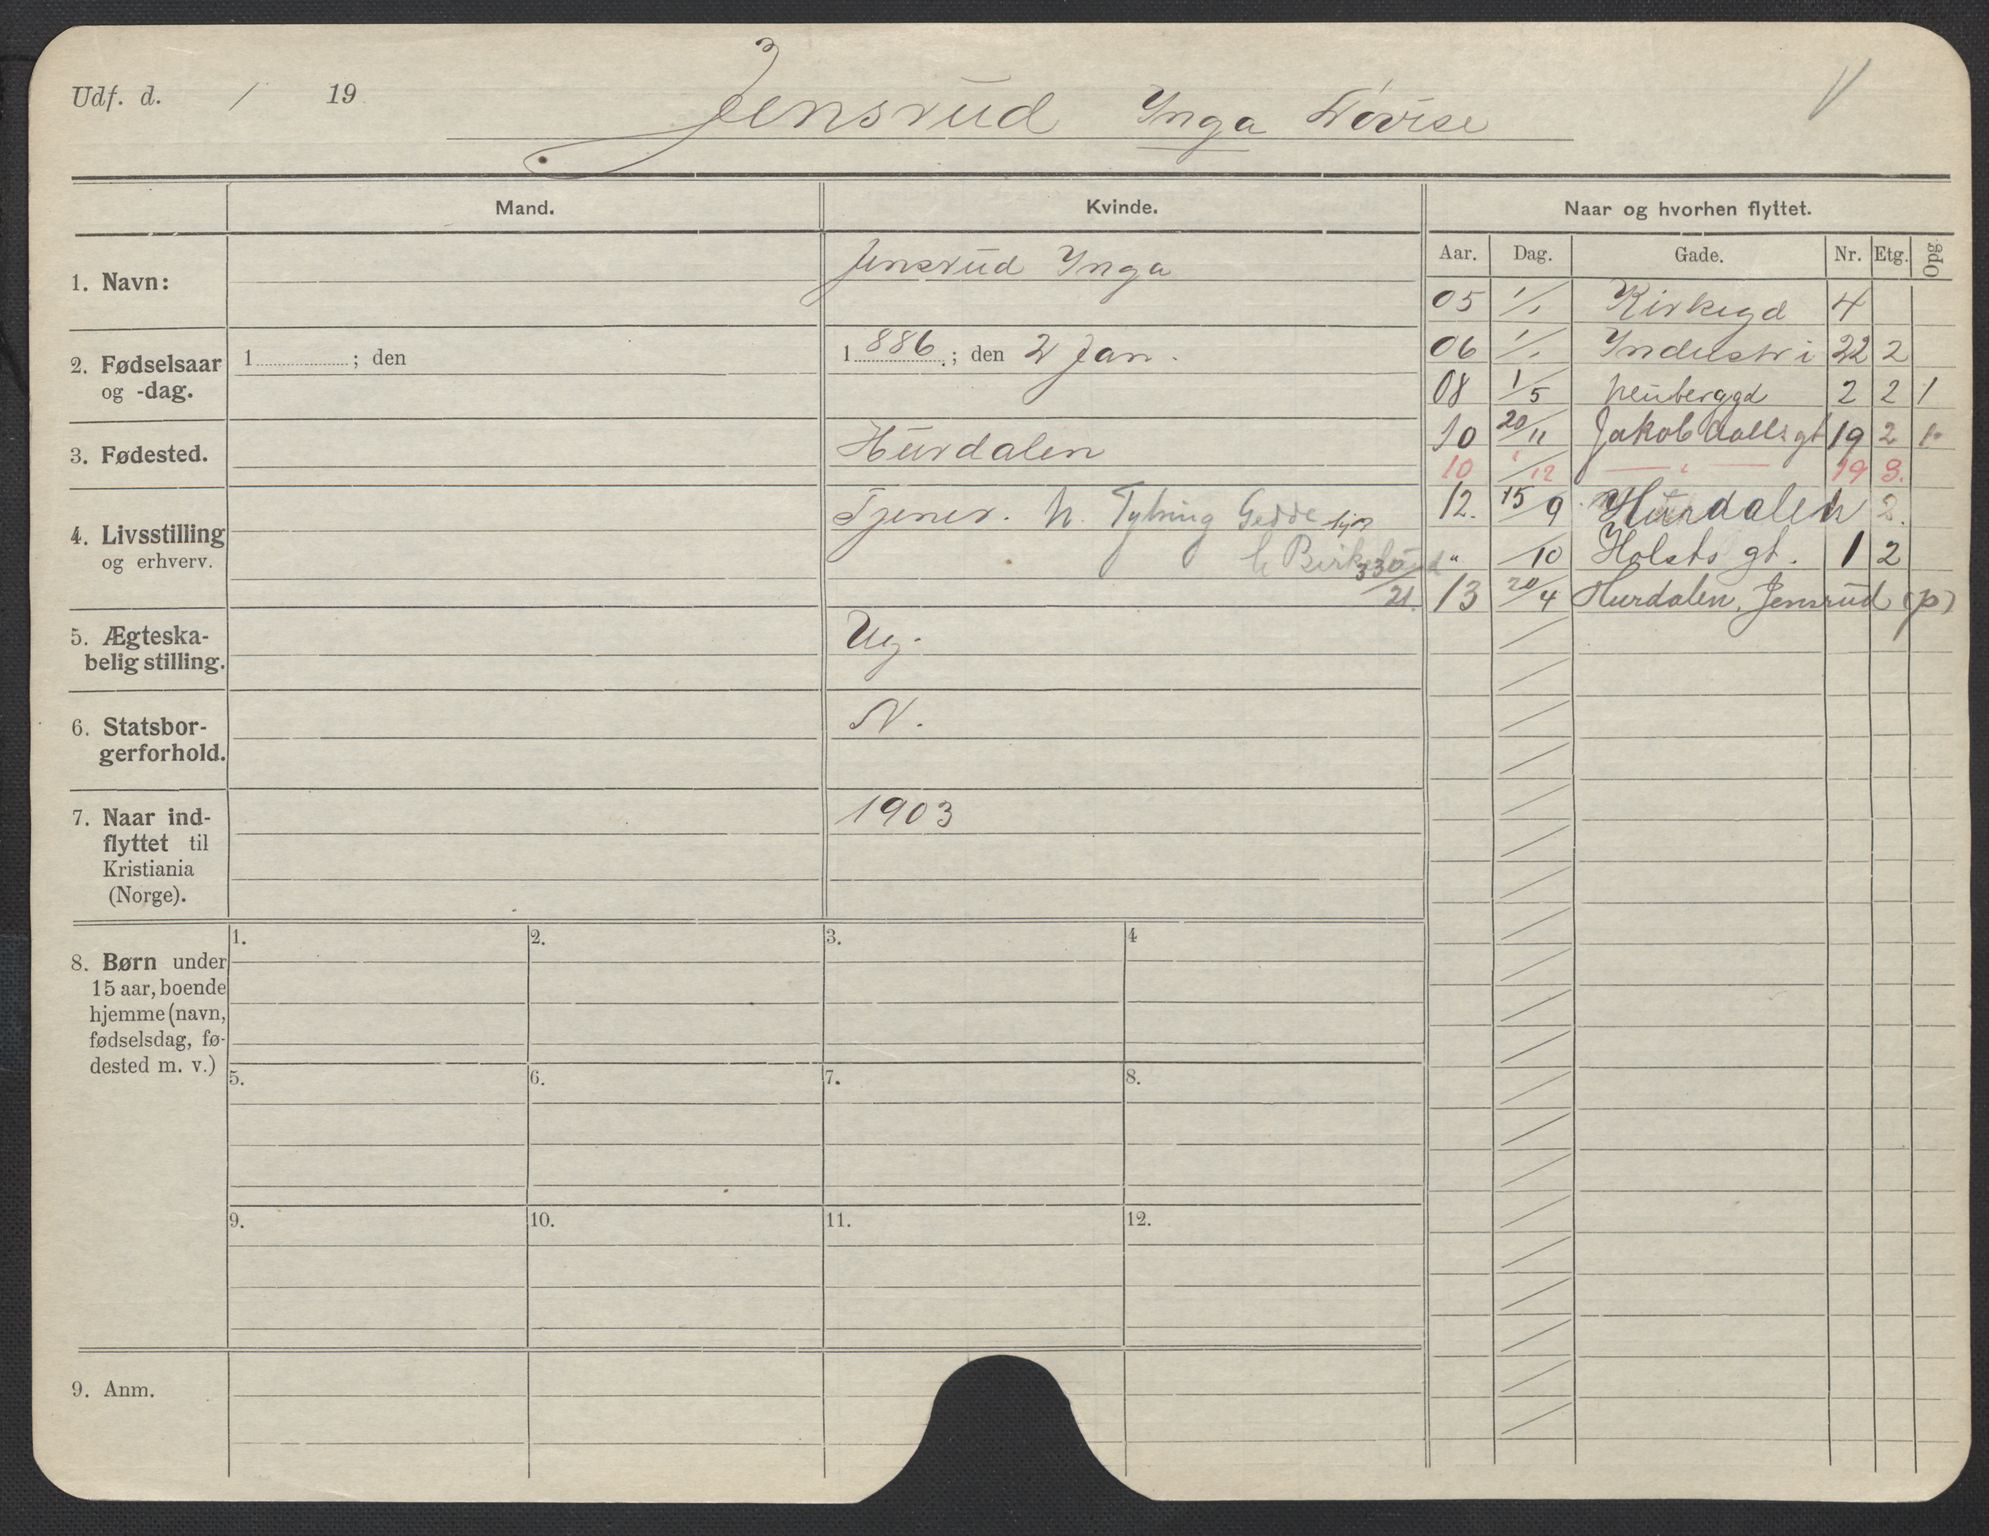 Udf. d. / 19 Jensrud Ynga Lovise
Mand. Kvinde. Naar og hvorhen flyttet.
Aar. Dag. Gade. Nr. Etg. Opg
1. Navn: Jensrud Ynga
2. Fødselsaar og -dag. 1 ; den 1886. ; den 2 Jan.
3. Fødested. Hurdalen
4. Livsstilling og erhverv. Tjener. h. Gedde
h Birkelund
330/21.
5. Ægteska-
belig stilling. Ug.
6. Statsbor-
gerforhold. N.
7. Naar ind-
flyttet til
Kristiania
(Norge). 1903
8. Børn under
15 aar, boende
hjemme (navn,
fødselsdag, fø-
dested m. v.)
1. 2. 3. 4
5. 6. 7. 8.
9. 10. 11. 12.
9. Anm.
05 1/1 Kirkegd 4
06 1/1 Industri 22 2
08 1/5 Neuberggd 2 2 1
10 20/11 Jakob Aalls gt 19 2 1.
10 1/12 — " — 19 3.
12. 15/9 Hurdalen 2.
" /10 Holsts gt. 1 2
13 20/4 Hurdalen, Jensrud (p)